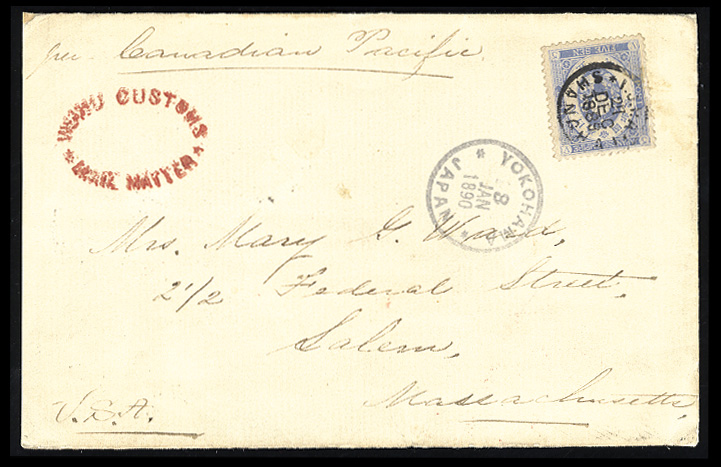 per Canadian Pacific.
CUSTOMS
* MAIL MATTER *
FIVE SEN
SHANGHAI
DEC
YOKOHAMA
8
JAN
1890
JAPAN
Mrs. Mary G. Ward,
2 1/2 Federal Street,
Salem,
Massachusetts,
U.S.A.